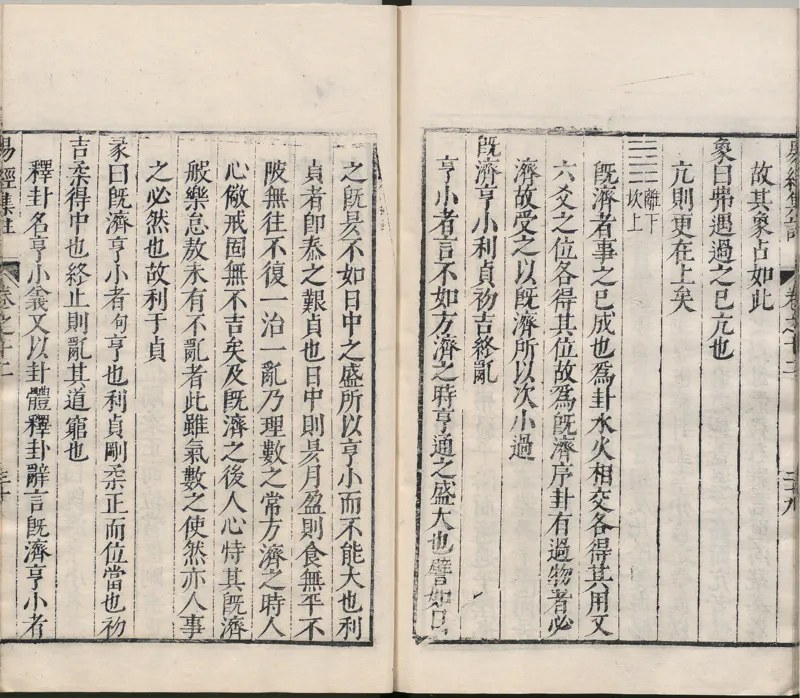 易經集註
卷之十二
二十九
故其象占如此
象曰弗遇過之已亢也
亢則更在上矣
離下
坎上
旣濟者事之已成也爲卦水火相交各得其用又
六爻之位各得其位故爲旣濟序卦有過物者必
濟故受之以旣濟所以次小過
旣濟亨小利貞初吉終亂
亨小者言不如方濟之時亨通之盛大也譬如日
之旣昃不如日中之盛所以亨小而不能大也利
貞者卽泰之艱貞也日中則昃月盈則食無平不
陂無往不復一治一亂乃理數之常方濟之時人
心儆戒固無不吉矣及旣濟之後人心恃其旣濟
般樂怠敖未有不亂者此雖氣數之使然亦人事
之必然也故利于貞
彖曰旣濟亨小者句亨也利貞剛柔正而位當也初
吉柔得中也終止則亂其道窮也
釋卦名亨小義又以卦體釋卦辭言旣濟亨小者
易經集註
卷之十二
三十